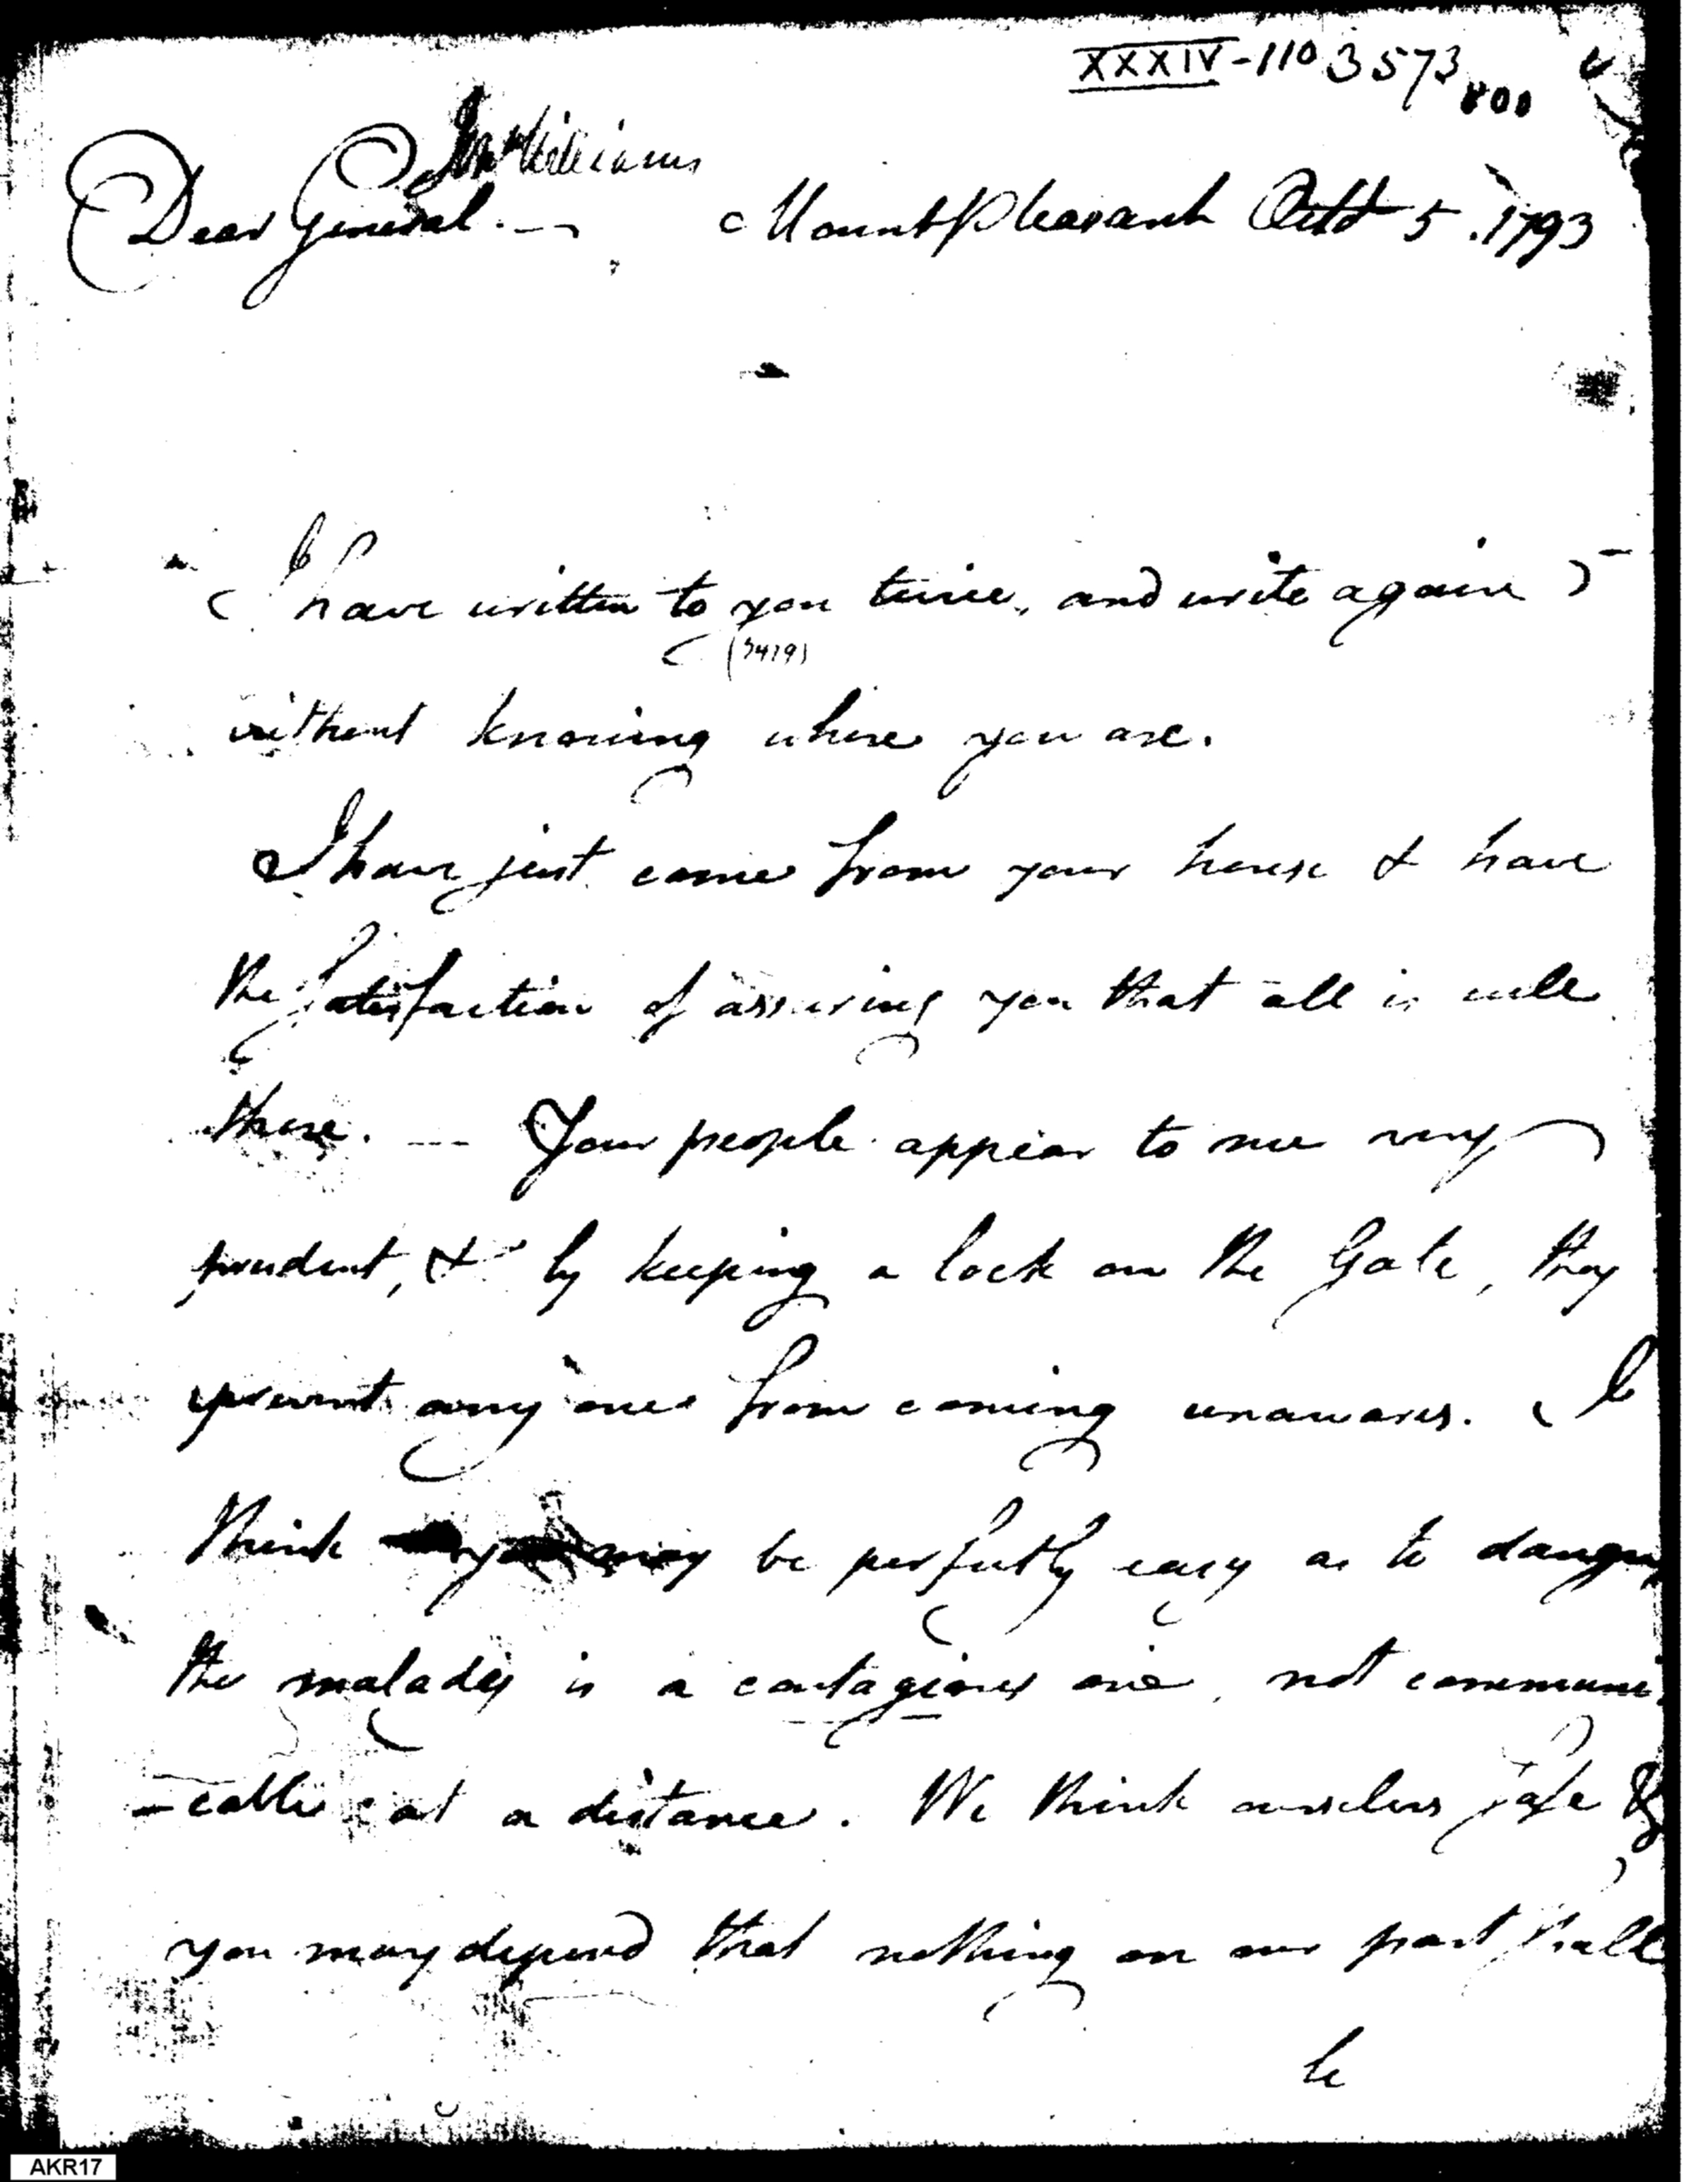 XXXIV-110 3573
800
Jon Williams
Dear General. — Mount Pleasant Octr 5. 1793
I have written to you twice, and write again
(3419)
without knowing where you are.
I have just come from your house & have
the Satisfaction of assuring you that all is well
there. — Your people appear to me very
prudent, & by keeping a lock on the Gate, they
prevent any one from coming unawares. I
think you may be perfectly easy as to danger
the malady is a contagious one, not communi
-cable at a distance. We think ourselves safe &
you may depend that nothing on our part shall
be
AKR17